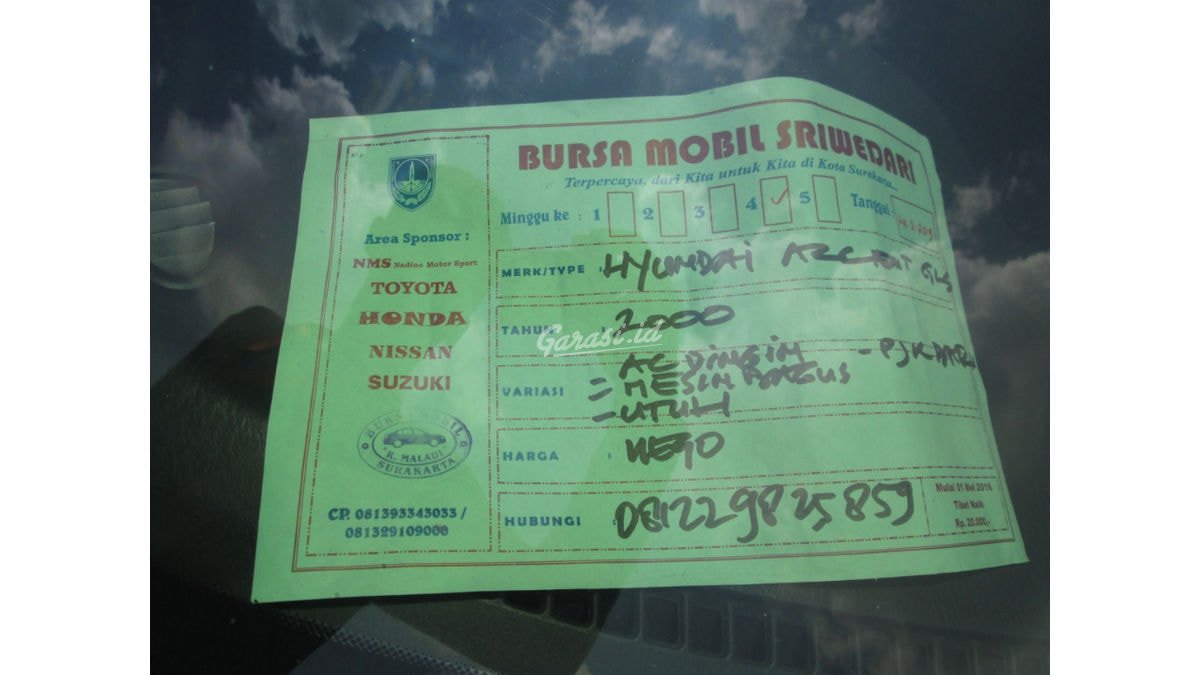 BURSA MOBIL SRIWEDARI
Terpercaya, dari Kita untuk Kita di Kota Surakarta...
Minggu ke : 1 2 3 4 ✓ 5 Tanggal :
Area Sponsor :
NMS Nadine Motor Sport
TOYOTA
HONDA
NISSAN
SUZUKI
BURSA MOBIL
R. MALADI
SURAKARTA
CP. 081393343033 /
081329109000
MERK/TYPE : HYUNDAI ACCENT GLS
TAHUN : 2000
Garasi.id
VARIASI
AC DINGIN
= MESIN BAGUS
- UTUH
HARGA : NEGO
HUBUNGI : 081229825859
Mulai 01 Mei 2014
Tiket Naik
Rp. 20.000,-